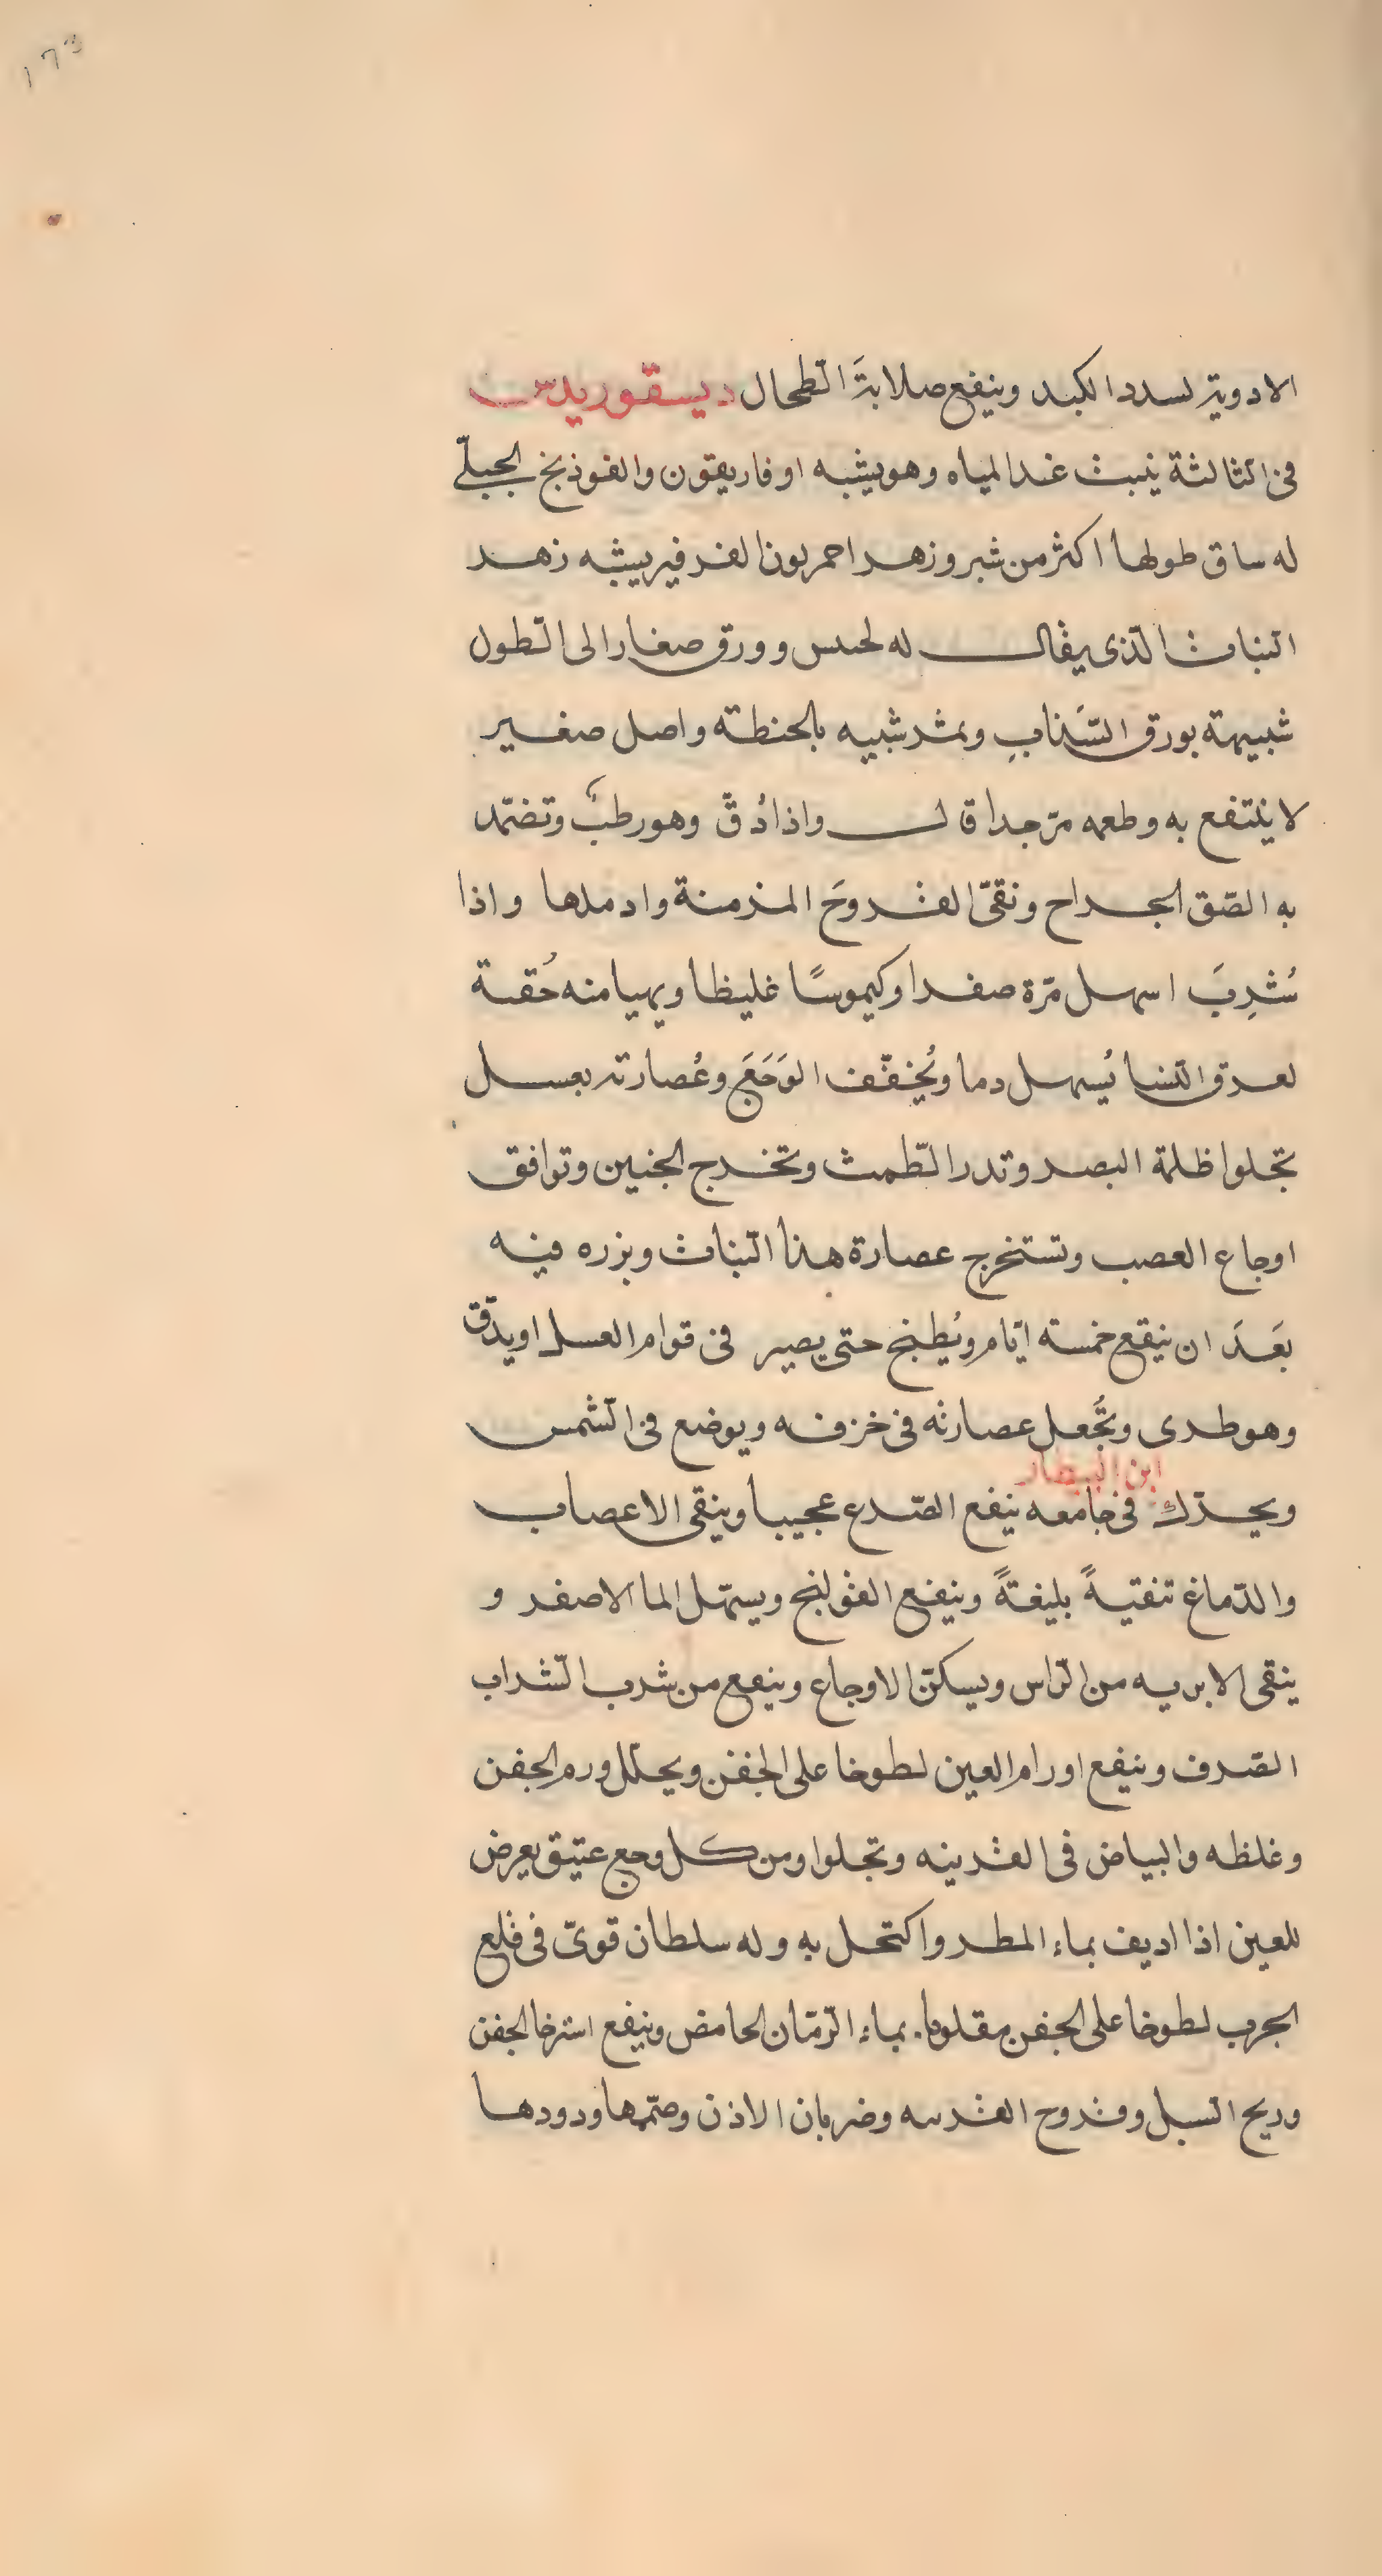 ١٧٣
الادوية لسدد الكبد وينفع صلابةَ الطّحال ديسقوريدس
فى الثّالثة ينبت عند المياه وهو يشبه اوفاريقون والفوذنج الجبلّى
له ساق طولها اكثر من شبر وزهر احمر بون الفرفير يشبه زهر
النّبات الّذى يقال له لحىس وورق صغار الى الطّول
شبيهة بورق السَّذابِ وثمر شبيه بالحنطة واصل صغير
لا ينتفع به وطعمه مرّ جدا قال واذا دُقّ وهو رطبٌ وتضمّد
به الصّق الجراح ونقىّ القروحَ المزمنة وادملها واذا
شُرِبَ اسهل مرّة صفرا وكيموسًا غليظا ويهيا منه حُقنة
لعرق النّسا يُسهل دما ويُخفّف الوَجَعَ وعُصارته بعسل
تجلوا ظلمة البصر وتدر الطّمث وتخرج الجنين وتوافق
اوجاع العصب وتستخرج عصارة هذا النّبات وبزره فيه
بَعدَ ان ينقع خمسة ايّام ويُطبخ حتى يصير فى قوام العسل او يدّق
وهو طرى وتُجعل عصارته فى خزفه ويوضع فى الشّمس
ابن البيطار
ويحرّك فى جامعه ينفع الصّرع عجيبا وينقى الاعصاب
والدّماغ تنقيةً بليغةً وينفع القولنج ويسهّل الما الاصفر و
ينقى الابريه من الرّاس ويسكنّ الاوجاع وينفع من شرب الشّراب
الصّرف وينفع اورام العين لطوخا على الجفن ويحلّل ورم الجفن
وغلظه والبياض فى القرنيه وتجلوا ومن كل وجع عتيق يعرض
للعين اذا اديف بماء المطر واكتحل به وله سلطان قوىّ فى قلع
الجرب لطوخا على الجفن مقلوبا بماء الرّمّان الحامض وينفع استرخا الجفن
وريح السّبل وقروح القرنيه وضربان الاذن وصمّمها ودودها